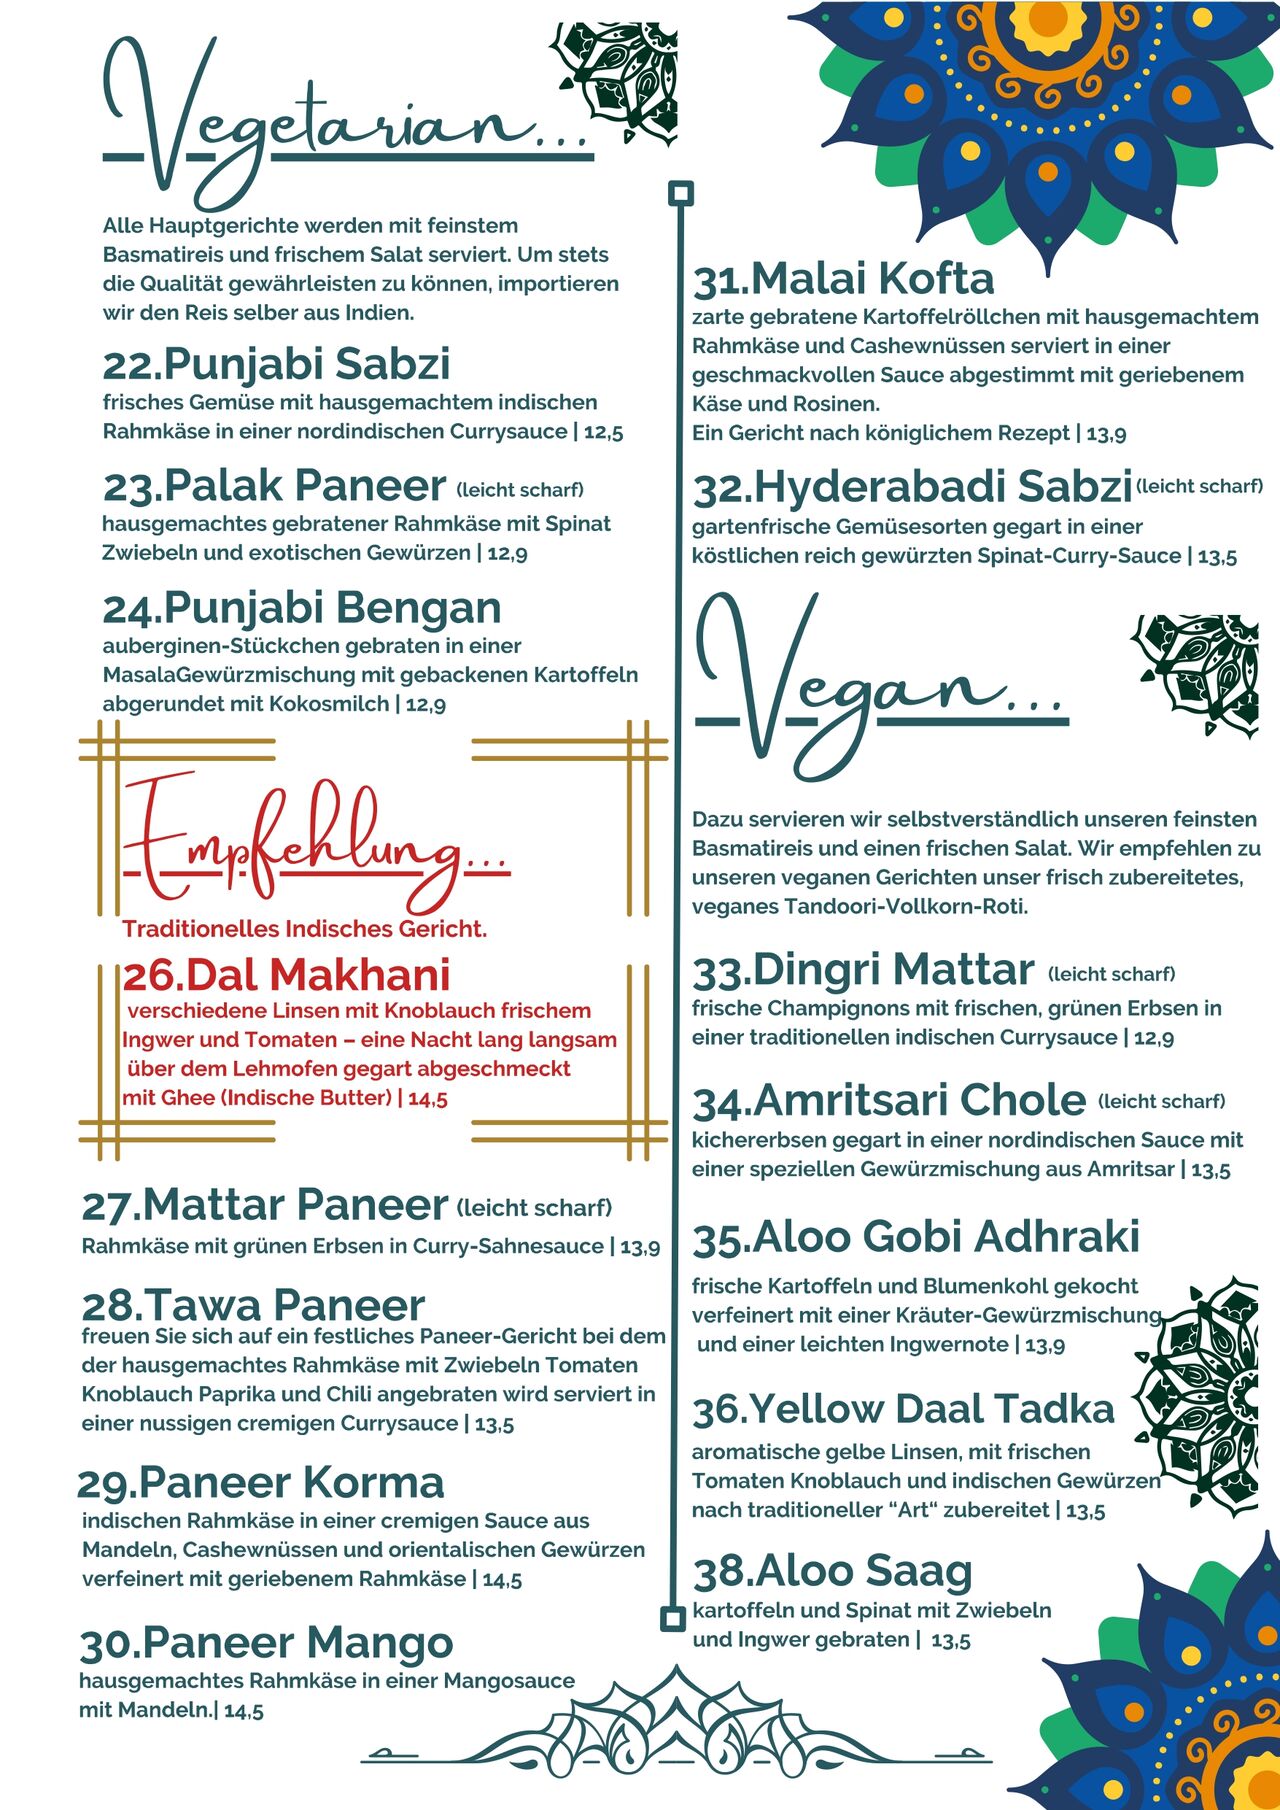 Vegetarian...
Alle Hauptgerichte werden mit feinstem
Basmatireis und frischem Salat serviert. Um stets
die Qualität gewährleisten zu können, importieren
wir den Reis selber aus Indien.
22.Punjabi Sabzi
frisches Gemüse mit hausgemachtem indischen
Rahmkäse in einer nordindischen Currysauce | 12,5
23.Palak Paneer (leicht scharf)
hausgemachtes gebratener Rahmkäse mit Spinat
Zwiebeln und exotischen Gewürzen | 12,9
24.Punjabi Bengan
auberginen-Stückchen gebraten in einer
MasalaGewürzmischung mit gebackenen Kartoffeln
abgerundet mit Kokosmilch | 12,9
Empfehlung...
Traditionelles Indisches Gericht.
26.Dal Makhani
verschiedene Linsen mit Knoblauch frischem
Ingwer und Tomaten – eine Nacht lang langsam
über dem Lehmofen gegart abgeschmeckt
mit Ghee (Indische Butter) | 14,5
27.Mattar Paneer (leicht scharf)
Rahmkäse mit grünen Erbsen in Curry-Sahnesauce | 13,9
28.Tawa Paneer
freuen Sie sich auf ein festliches Paneer-Gericht bei dem
der hausgemachtes Rahmkäse mit Zwiebeln Tomaten
Knoblauch Paprika und Chili angebraten wird serviert in
einer nussigen cremigen Currysauce | 13,5
29.Paneer Korma
indischen Rahmkäse in einer cremigen Sauce aus
Mandeln, Cashewnüssen und orientalischen Gewürzen
verfeinert mit geriebenem Rahmkäse | 14,5
30.Paneer Mango
hausgemachtes Rahmkäse in einer Mangosauce
mit Mandeln.| 14,5
31.Malai Kofta
zarte gebratene Kartoffelröllchen mit hausgemachtem
Rahmkäse und Cashewnüssen serviert in einer
geschmackvollen Sauce abgestimmt mit geriebenem
Käse und Rosinen.
Ein Gericht nach königlichem Rezept | 13,9
32.Hyderabadi Sabzi (leicht scharf)
gartenfrische Gemüsesorten gegart in einer
köstlichen reich gewürzten Spinat-Curry-Sauce | 13,5
Vegan...
Dazu servieren wir selbstverständlich unseren feinsten
Basmatireis und einen frischen Salat. Wir empfehlen zu
unseren veganen Gerichten unser frisch zubereitetes,
veganes Tandoori-Vollkorn-Roti.
33.Dingri Mattar (leicht scharf)
frische Champignons mit frischen, grünen Erbsen in
einer traditionellen indischen Currysauce | 12,9
34.Amritsari Chole (leicht scharf)
kichererbsen gegart in einer nordindischen Sauce mit
einer speziellen Gewürzmischung aus Amritsar | 13,5
35.Aloo Gobi Adhraki
frische Kartoffeln und Blumenkohl gekocht
verfeinert mit einer Kräuter-Gewürzmischung
und einer leichten Ingwernote | 13,9
36.Yellow Daal Tadka
aromatische gelbe Linsen, mit frischen
Tomaten Knoblauch und indischen Gewürzen
nach traditioneller “Art“ zubereitet | 13,5
38.Aloo Saag
kartoffeln und Spinat mit Zwiebeln
und Ingwer gebraten | 13,5